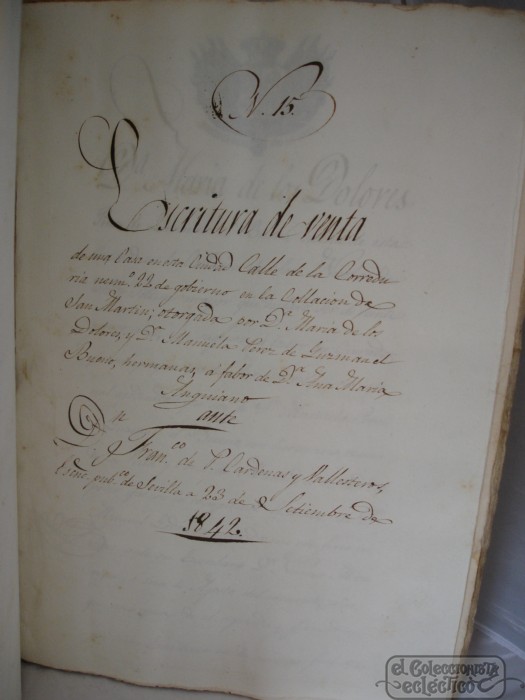 N. 15.
Escritura de venta
de una Casa en esta Ciudad Calle de la Corredu
ria num.º 22 de gobierno en la Collacion de
San Martin; otorgada por D.ª Maria de lo.
Dolores, y D.ª Manuela Perez de Guzman el
Bueno, hermanas, a fabor de D.ª Ana Maria
Anguiano
En
ante
Fran.co de P. Cardenas y Vallesteros,
Esno. pub.co de Sevilla a 23 de Setiembre de
1842.
el Coleccionista
ecléctico